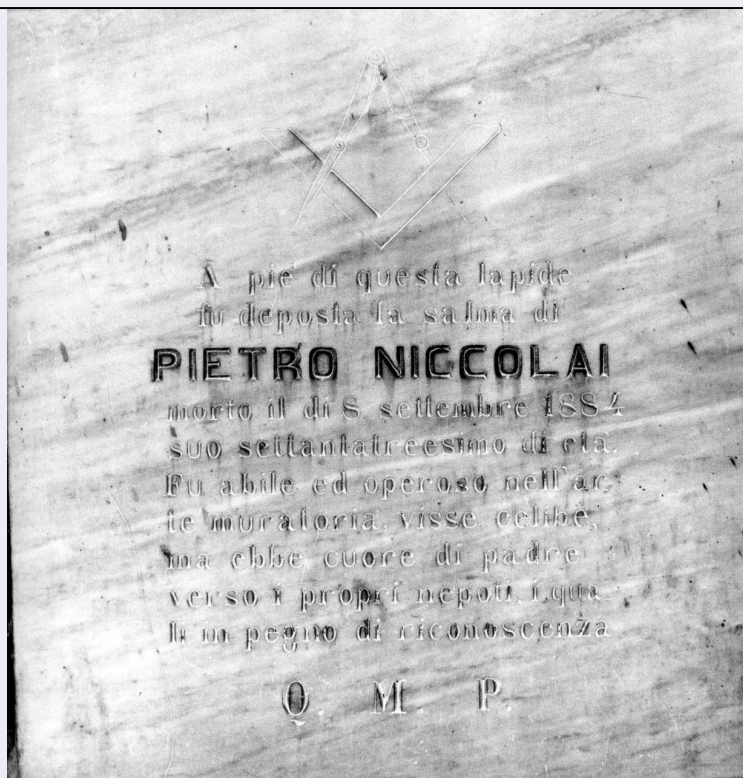 A piè di questa lapide
fu deposta la salma di
PIETRO NICCOLAI
morto il dì 8 settembre 1884
suo settantatreesimo di età.
Fu abile ed operoso nell'ar
te muratoria, visse celibe,
ma ebbe cuore di padre
verso i proprî nepoti, i qua
li in pegno di riconoscenza
Q. M. P.